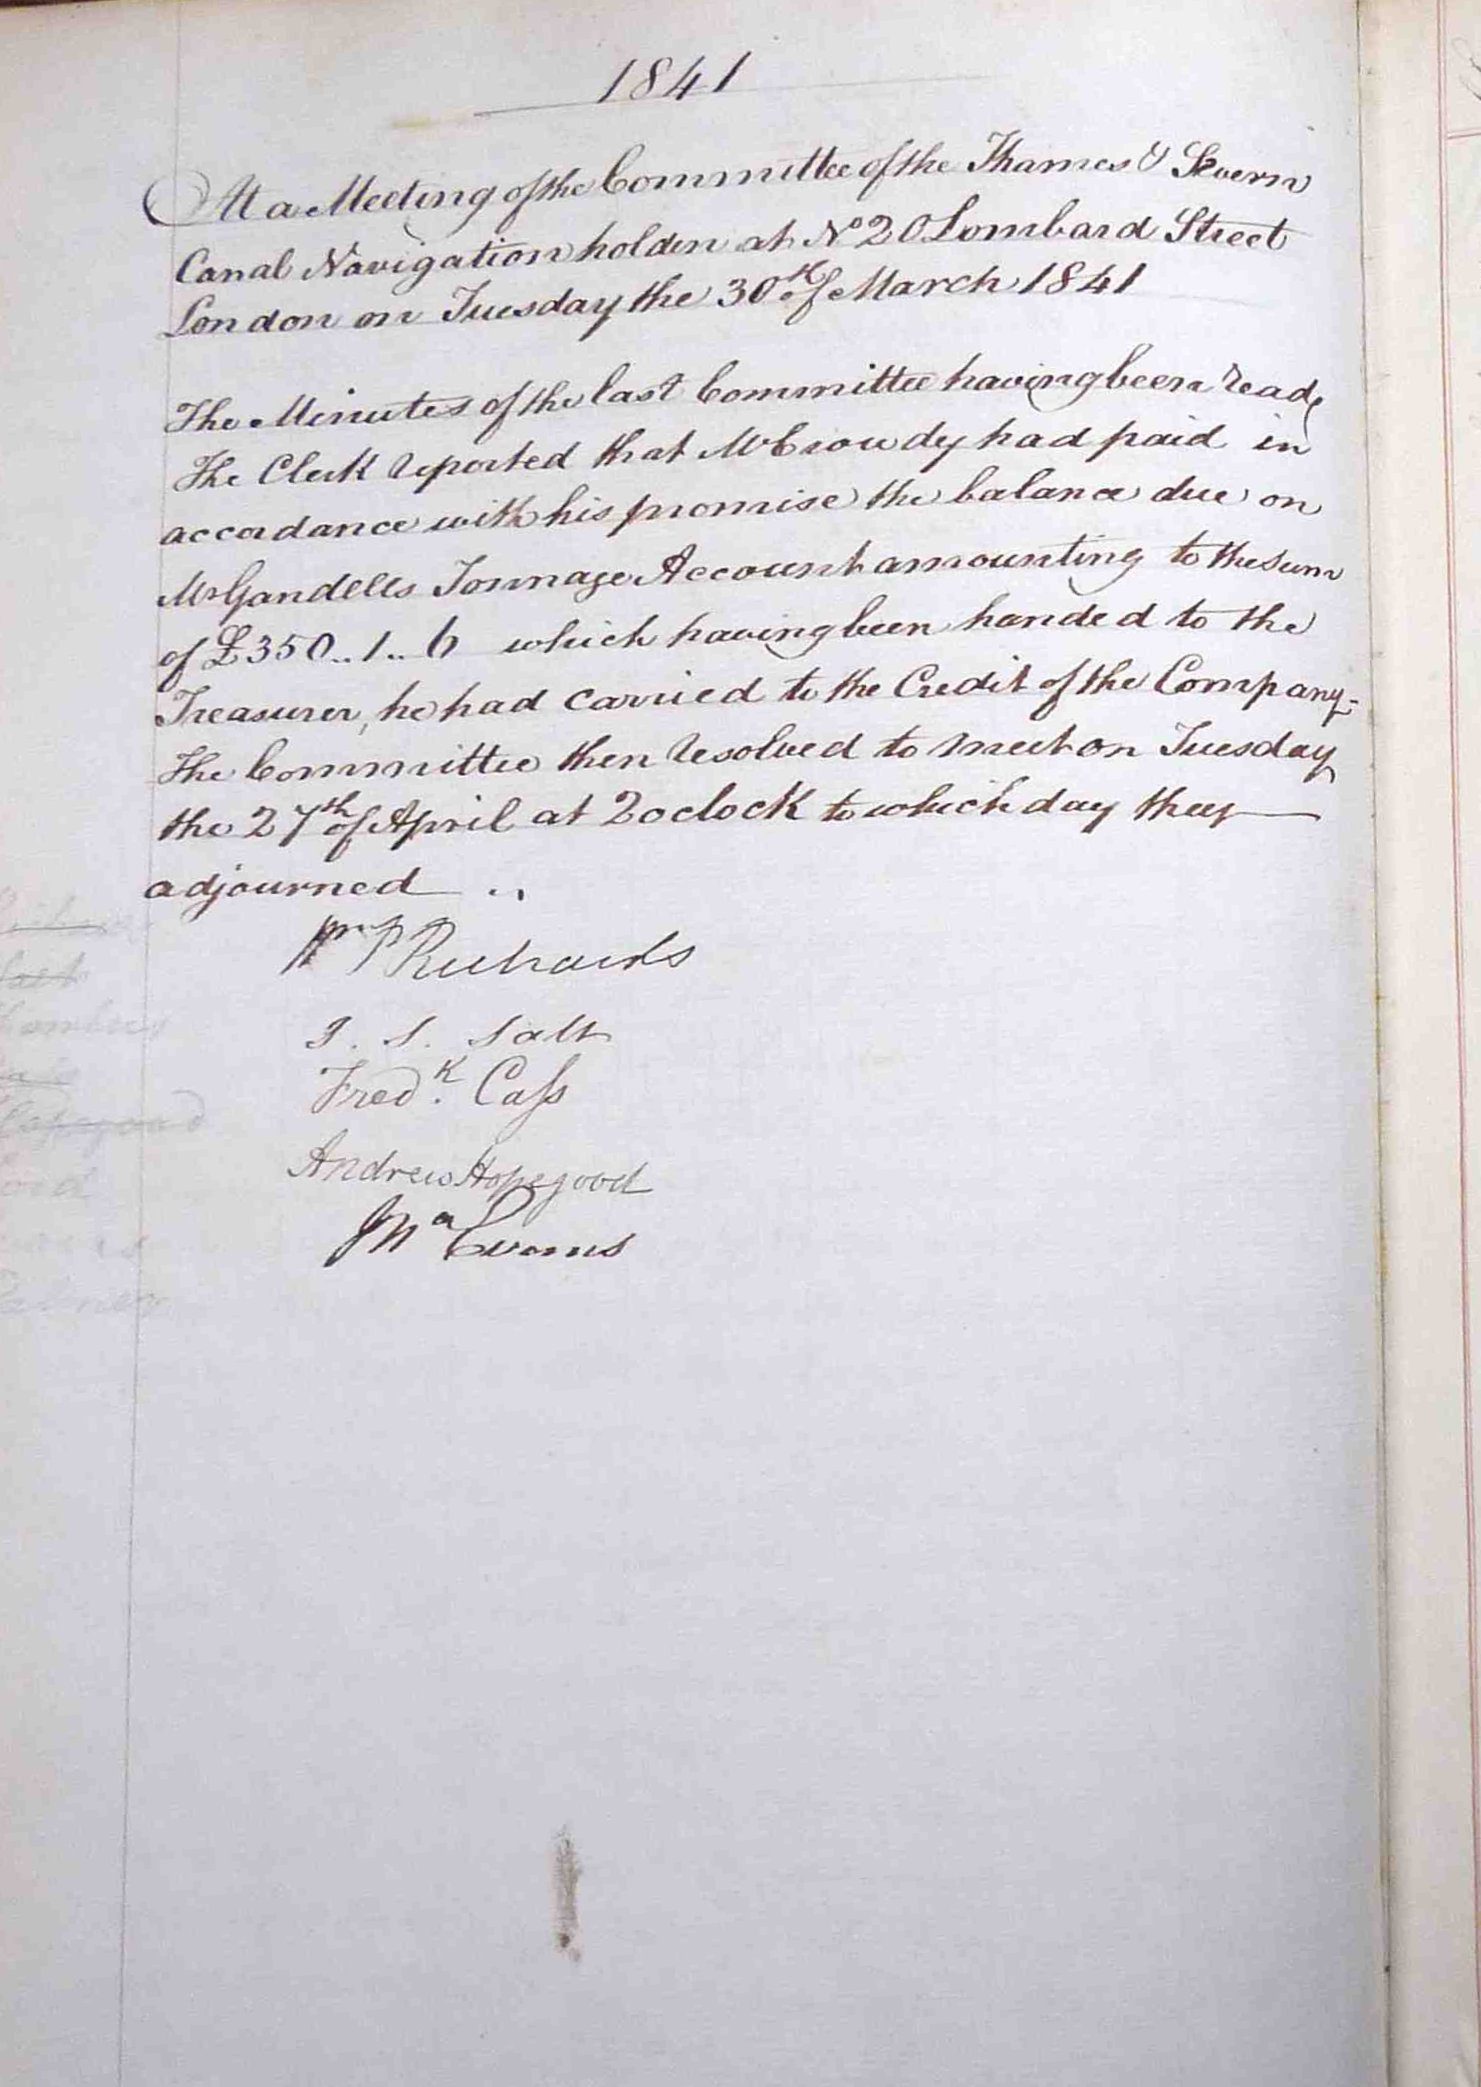 1841
At a Meeting of the Committee of the Thames & Severn
Canal Navigation holden at No 20 Lombard Street
London on Tuesday the 30th of March 1841
The Minutes of the last Committee having been read,
The Clerk reported that Mr Crowdy had paid in
accordance with his promise the balance due on
Mr Gandells Tonnage Account amounting to the sum
of £350..1..6 which having been handed to the
Treasurer, he had carried to the Credit of the Company-
The Committee then resolved to meet on Tuesday
the 27th of April at 2 oclock to which day they
adjourned ..
Wm P Richards
T. S. Salt
Fredk. Cass
Andrew Hopegood
Jna Evans